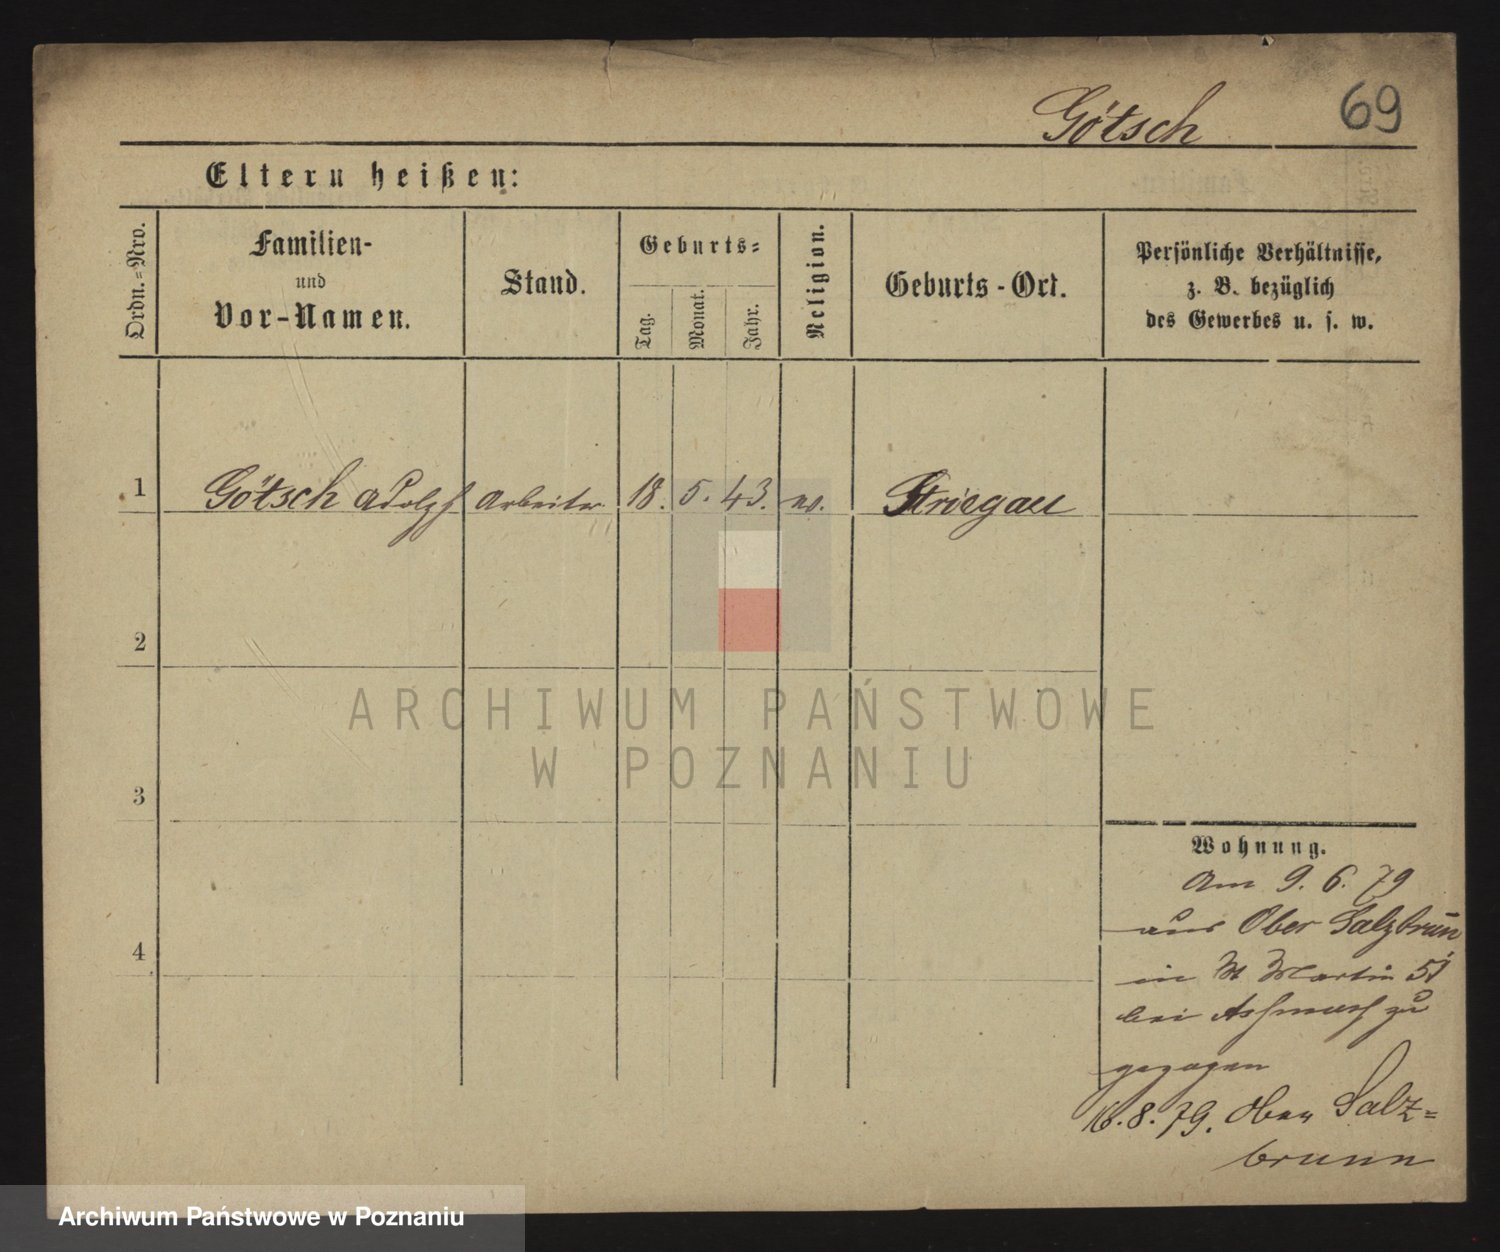 Götsch 69
Eltern heißen:
Ordn.=Nro.
Familien-
und
Vor-Namen.
Stand.
Geburts=
Tag.
Monat.
Jahr.
Religion.
Geburts-Ort.
Persönliche Verhältnisse,
z. B. bezüglich
des Gewerbes u. s. w.
1 Götsch Adolph Arbeiter 18. 5. 43. ev. Striegau
2
3
4
Wohnung.
Am 9. 6. 79
aus Ober Salzbrun̄
in St Martin 51
bei zu
gezogen
16. 8. 79. Ober Salz=
brunn
ARCHIWUM PAŃSTWOWE
W POZNANIU
Archiwum Państwowe w Poznaniu